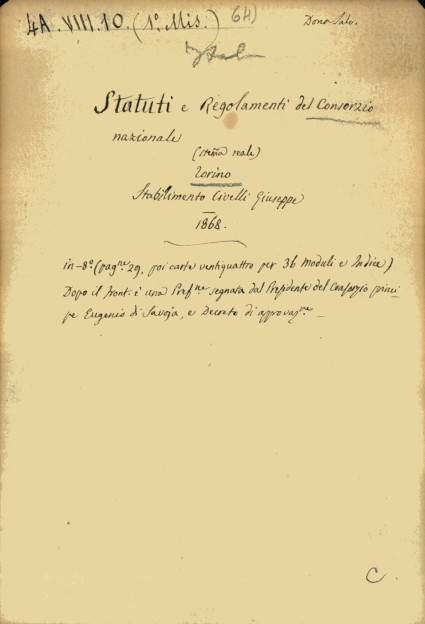 4A. VIII. 10. (1º Mis.) 64)
Dono Salv.
Ital
Statuti e Regolamenti del Consorzio
nazionale
(stema reale)
Torino
Stabilimento Civelli Giuseppe
—
1868.
in-8º (pagne 29, poi carte ventiquattro per 36 Moduli e Indice)
Dopo il front. è una Prefne segnata dal Presidente del Consorzio princi
pe Eugenio di Savoja, e Decreto di approvazne —
C